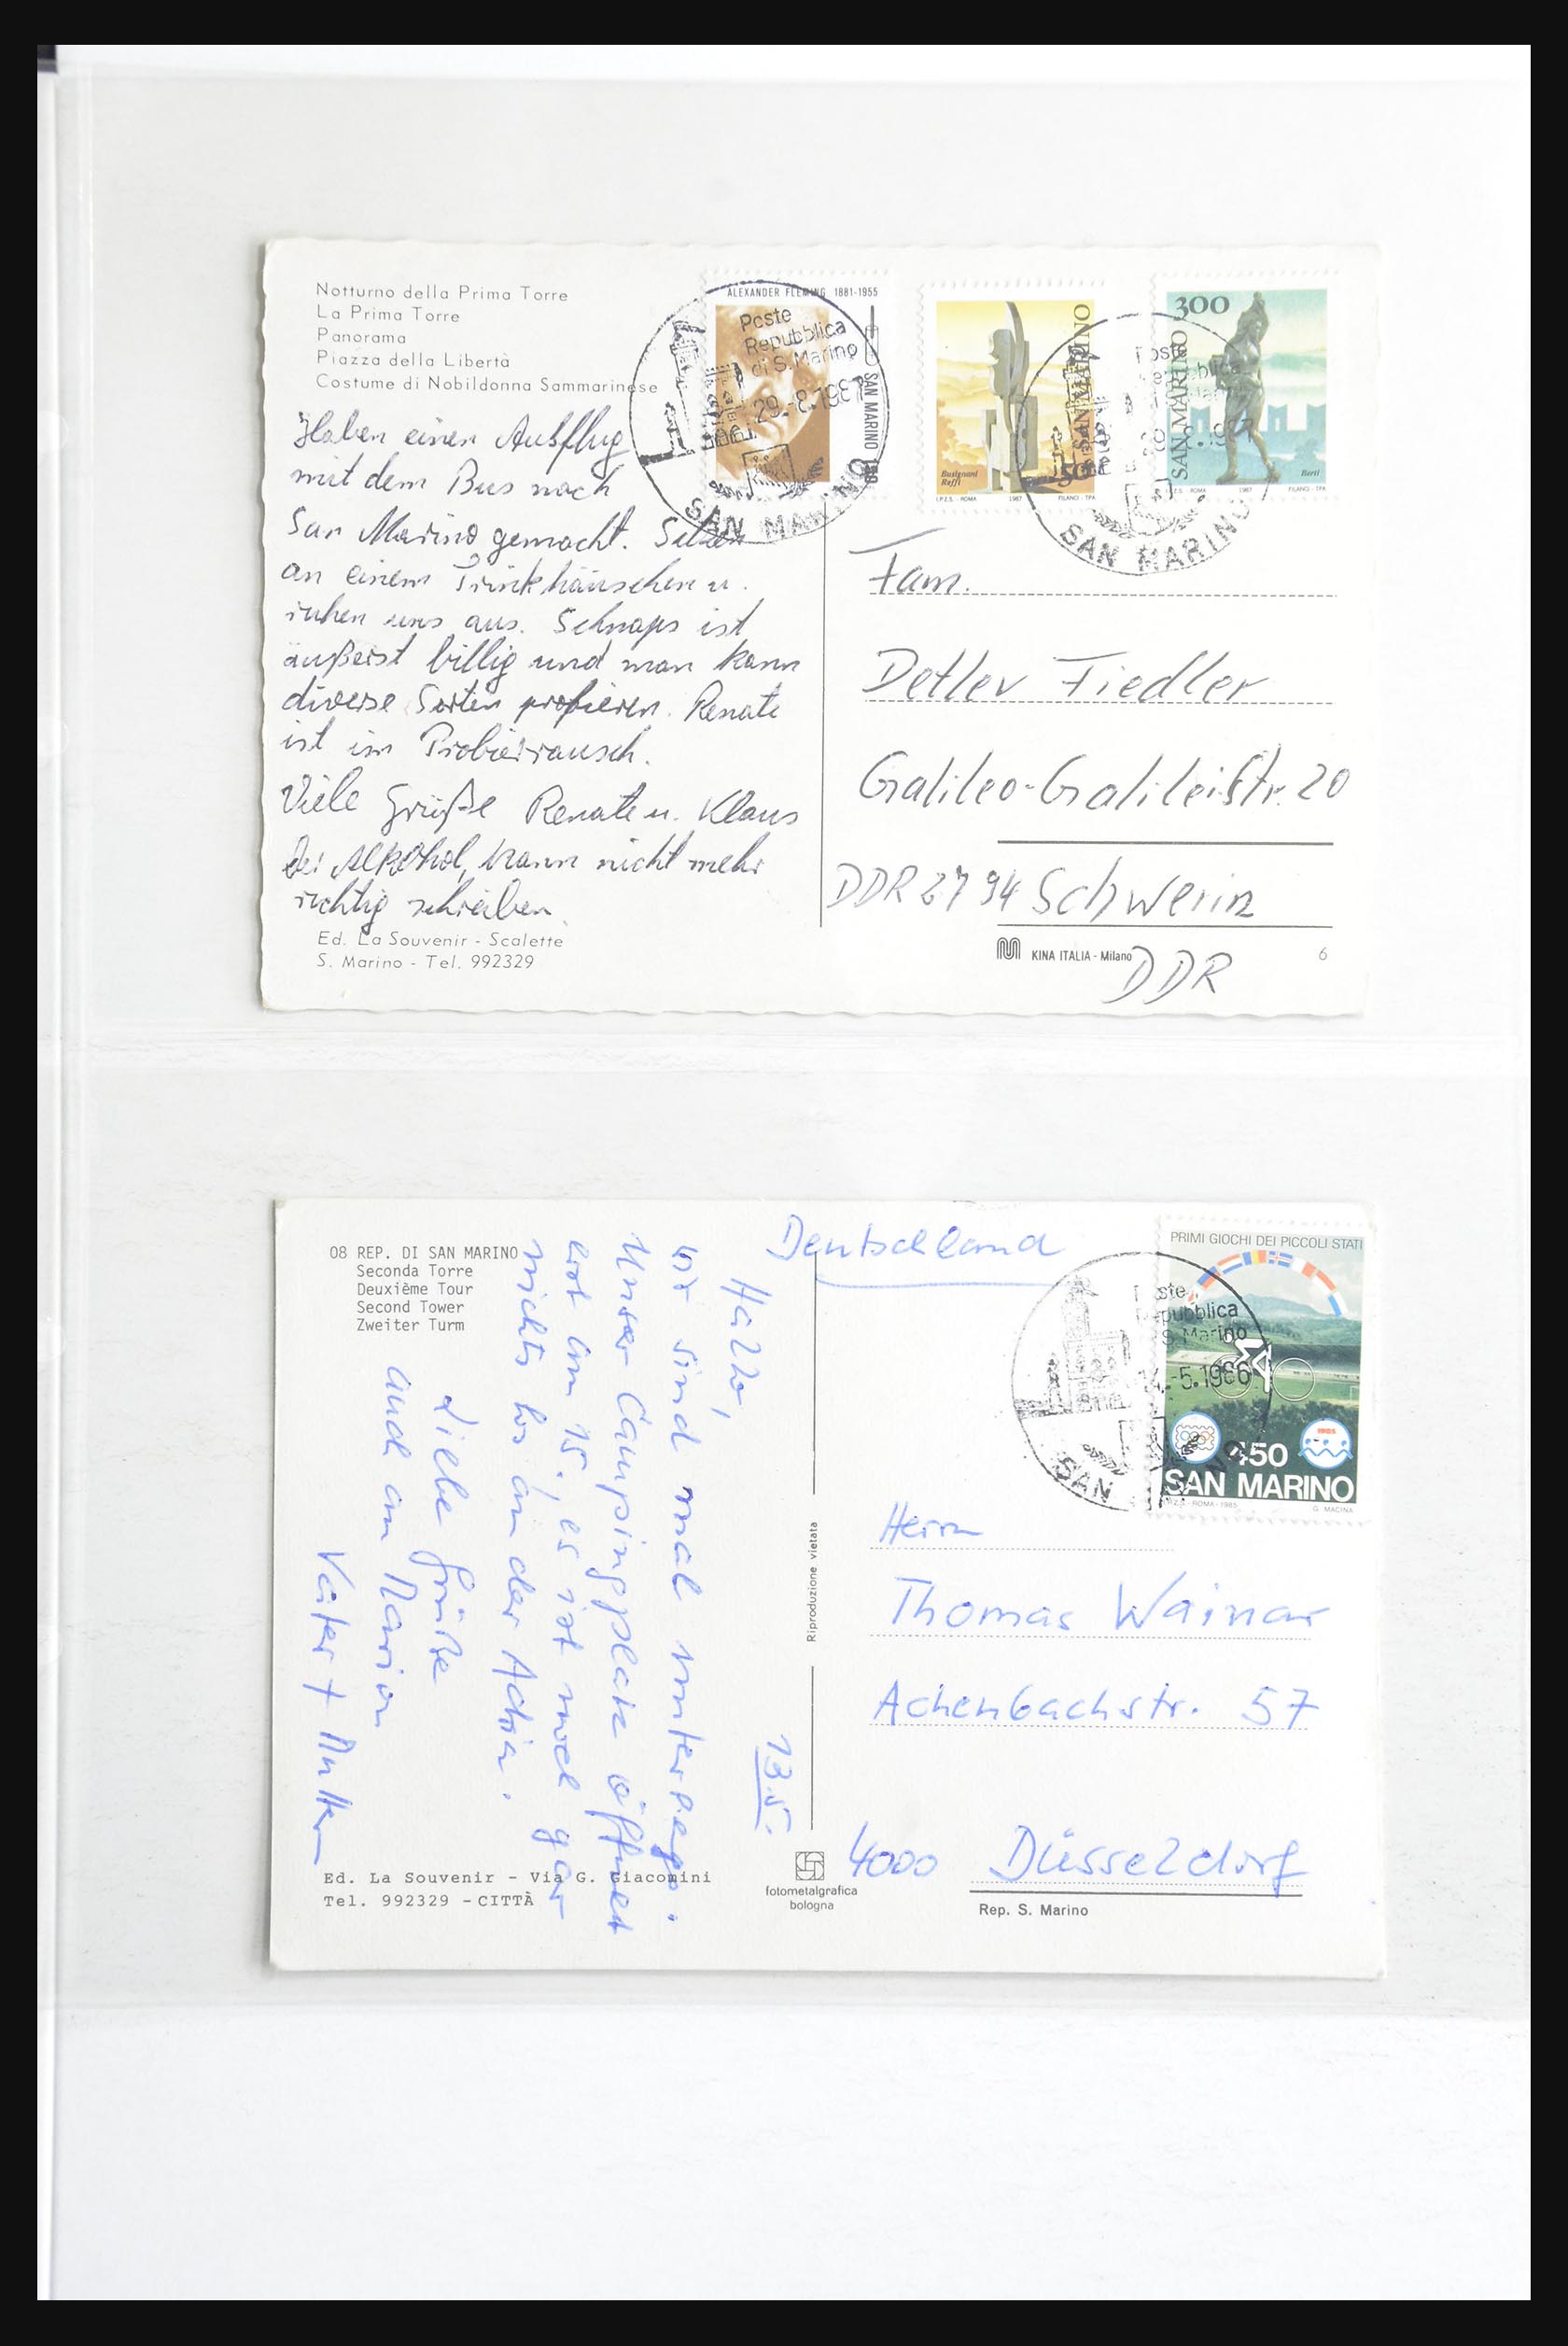 Notturno della Prima Torre
La Prima Torre
Panorama
Piazza della Libertà
Costume di Nobildonna Sammarinese
Haben einen Ausflug
mit dem Bus nach
San Marino gemacht. Sitzen
an einem Trinkhäuschen u.
ruhen uns aus. Schnaps ist
äußerst billig und man kann
diverse Sorten probieren. Renate
ist im Probierrausch.
Viele Grüße Renate u. Klaus
Der Alkohol, kann nicht mehr
richtig schreiben
Ed. La Souvenir - Scalette
S. Marino - Tel. 992329
ALEXANDER FLEMING 1881-1955
SAN MARINO
Poste
Repubblica
di S. Marino
29.-8.1987
SAN MARINO
Busignani
Reffi
SAN MARINO
I.P.Z.S. - ROMA 1987 FILANO - TPA
300
SAN MARINO
Berti
I.P.Z.S. - ROMA 1987 FILANO - TPA
Poste
SAN MARINO
Fam.
Detlev Fiedler
Galileo-Galileistr. 20
DDR 2794 Schwerin
DDR
KINA ITALIA - Milano
6
08 REP. DI SAN MARINO
Seconda Torre
Deuxième Tour
Second Tower
Zweiter Turm
Deutschland
13.5.
Hallo,
wir sind mal unterwegs.
Unser Campingplatz öffnet
erst am 15., es ist noch gar
nichts los an der Adria.
Liebe Grüße
auch an Marion
Vater + Mutter
Ed. La Souvenir - Via G. Giacomini
Tel. 992329 - CITTÀ
Riproduzione vietata
fotometalgrafica
bologna
PRIMI GIOCHI DEI PICCOLI STATI
1985
450
SAN MARINO
I.P.Z.S. - ROMA - 1985 G. MACINA
Poste
Repubblica
S. Marino
-5.1986
SAN
Herrn
Thomas Wainar
Achenbachstr. 57
4000 Düsseldorf
Rep. S. Marino